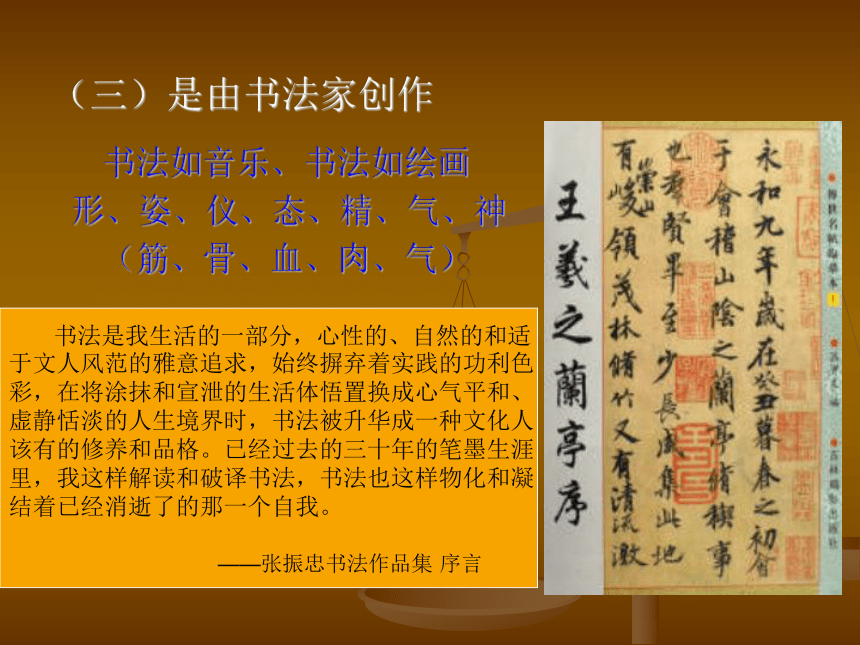 （三）是由书法家创作
书法如音乐、书法如绘画
形、姿、仪、态、精、气、神
（筋、骨、血、肉、气）
书法是我生活的一部分，心性的、自然的和适
于文人风范的雅意追求，始终摒弃着实践的功利色
彩，在将涂抹和宣泄的生活体悟置换成心气平和、
虚静恬淡的人生境界时，书法被升华成一种文化人
该有的修养和品格。已经过去的三十年的笔墨生涯
里，我这样解读和破译书法，书法也这样物化和凝
结着已经消逝了的那一个自我。
——张振忠书法作品集 序言
傳世名帖臨摹本
1
吉林攝影出版社
永和九年歲在癸丑暮春之初會
于會稽山陰之蘭亭脩稧事
也羣賢畢至少長咸集此地
有崇山峻領茂林脩竹又有清流激
王羲之蘭亭序